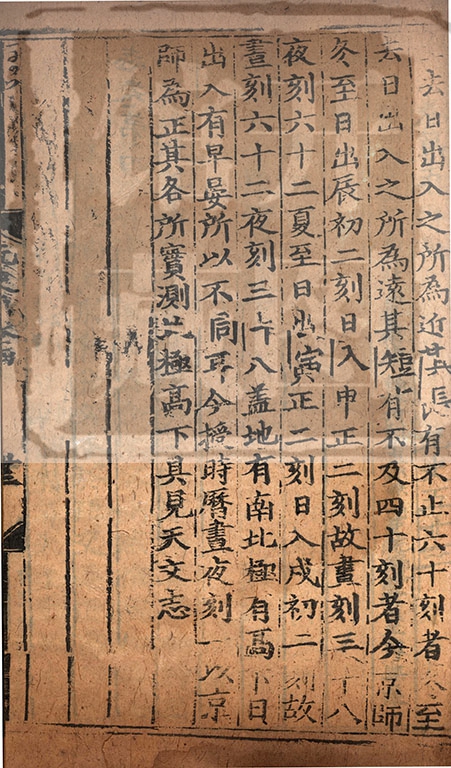 去日出入之所為近其長有不止六十刻者冬至
去日出入之所為遠其短有不及四十刻者今京師
冬至日出辰初二刻日入申正二刻故晝刻三十八
夜刻六十二夏至日出寅正二刻日入戌初二刻故
晝刻六十二夜刻三十八蓋地有南北極有高下日
出入有早晏所以不同耳今授時曆晝夜刻一以京
師為正其各所實測北極高下具見天文志